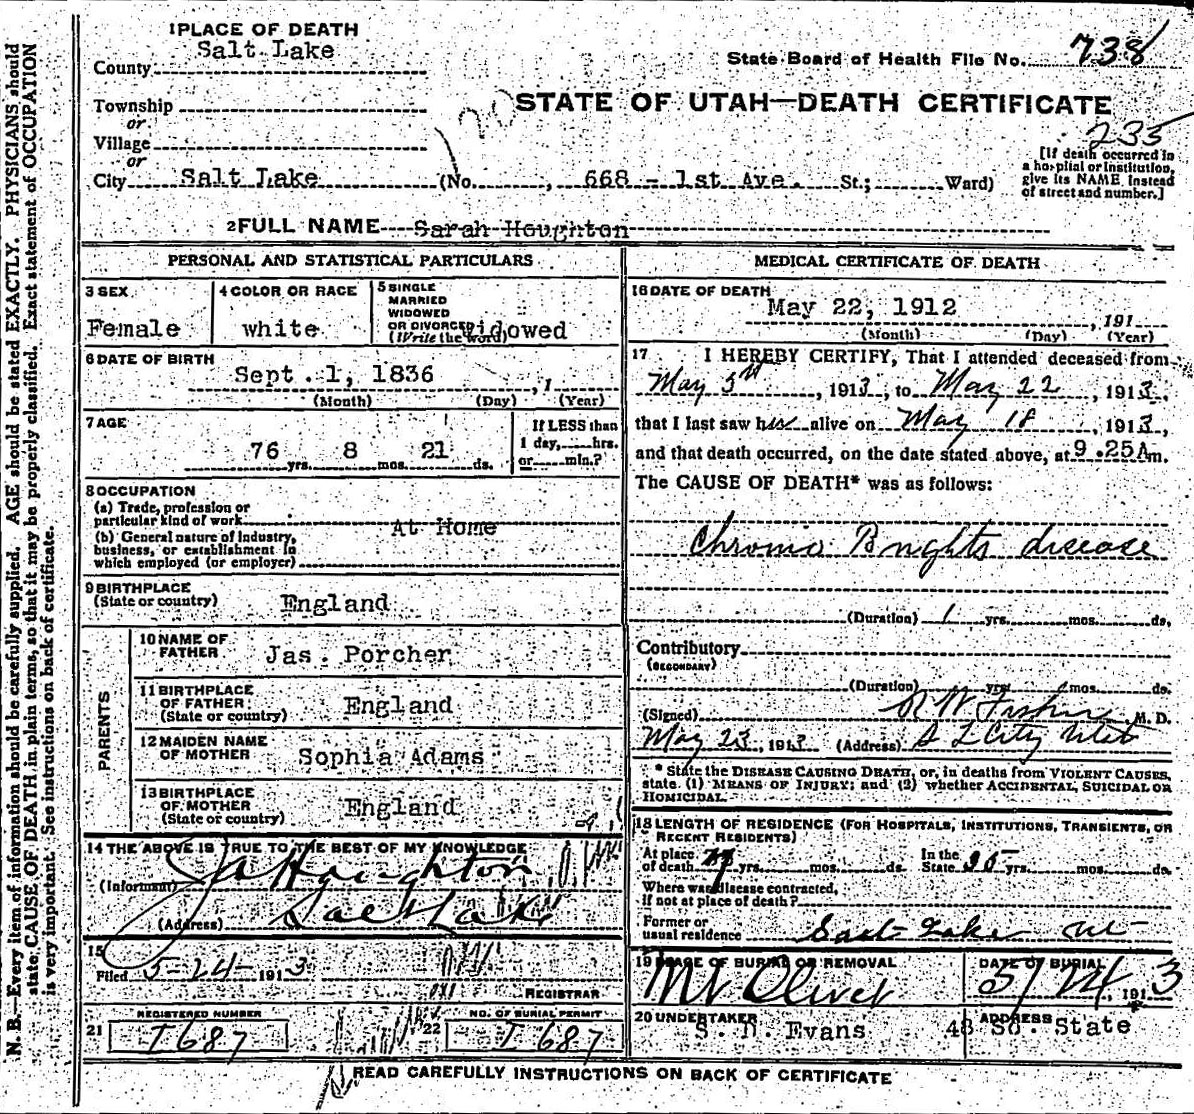 N. B.—Every item of information should be carefully supplied. AGE should be stated EXACTLY. PHYSICIANS should
state CAUSE OF DEATH in plain terms, so that it may be properly classified. Exact statement of OCCUPATION
is very important. See instructions on back of certificate.
1 PLACE OF DEATH
County Salt Lake
State Board of Health File No. 738
Township
or
STATE OF UTAH—DEATH CERTIFICATE
Village
or
235
City Salt Lake (No. , 668 - 1st Ave. St.; Ward)
[If death occurred in
a hospital or institution,
give its NAME instead
of street and number.]
2 FULL NAME Sarah Houghton
PERSONAL AND STATISTICAL PARTICULARS
3 SEX
Female
4 COLOR OR RACE
white
5 SINGLE
MARRIED
WIDOWED
OR DIVORCED
(Write the word) widowed
6 DATE OF BIRTH
Sept. 1, 1836 , 1
(Month) (Day) (Year)
7 AGE
76 yrs. 8 mos. 21 ds.
If LESS than
1 day, hrs.
or min.?
8 OCCUPATION
(a) Trade, profession or
particular kind of work
At Home
(b) General nature of Industry,
business, or establishment in
which employed (or employer)
9 BIRTHPLACE
(State or country) England
PARENTS
10 NAME OF
FATHER Jas. Porcher
11 BIRTHPLACE
OF FATHER
(State or country) England
12 MAIDEN NAME
OF MOTHER Sophia Adams
13 BIRTHPLACE
OF MOTHER
(State or country) England
14 THE ABOVE IS TRUE TO THE BEST OF MY KNOWLEDGE
(Informant) Houghton
(Address) Salt Lake
15
Filed 5-24- 1913
REGISTRAR
21 REGISTERED NUMBER
I 687
22 NO. OF BURIAL PERMIT
I 687
MEDICAL CERTIFICATE OF DEATH
16 DATE OF DEATH
May 22, 1912 , 191
(Month) (Day) (Year)
17 I HEREBY CERTIFY, That I attended deceased from
May 5th , 1913, to May 22 , 1913,
that I last saw her alive on May 18 , 1913,
and that death occurred, on the date stated above, at 9.25A m.
The CAUSE OF DEATH* was as follows:
Chronic Brights disease
(Duration) 1 yrs. mos. ds.
Contributory
(SECONDARY)
(Duration) yrs. mos. ds.
(Signed) R W M. D.
May 23, 1913 (Address) S L City Utah
* State the DISEASE CAUSING DEATH, or, in deaths from VIOLENT CAUSES,
state (1) MEANS OF INJURY; and (2) whether ACCIDENTAL, SUICIDAL OR
HOMICIDAL.
18 LENGTH OF RESIDENCE (FOR HOSPITALS, INSTITUTIONS, TRANSIENTS, OR
RECENT RESIDENTS)
At place
of death yrs. mos. ds.
In the
State yrs. mos. ds.
Where was disease contracted,
if not at place of death?
Former or
usual residence Salt Lake Ut
19 PLACE OF BURIAL OR REMOVAL
Mt Olivet
DATE OF BURIAL
5/24, 1913
20 UNDERTAKER
S. D. Evans
ADDRESS
48 So. State
READ CAREFULLY INSTRUCTIONS ON BACK OF CERTIFICATE